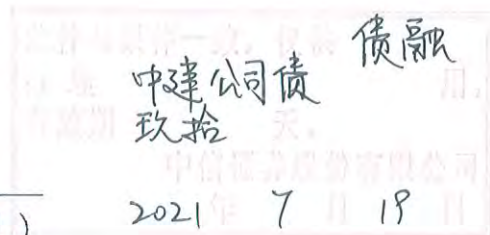 债融
中建公司债
玖拾 天。
中信证券股份有限公司
2021 年 7 月 19 日